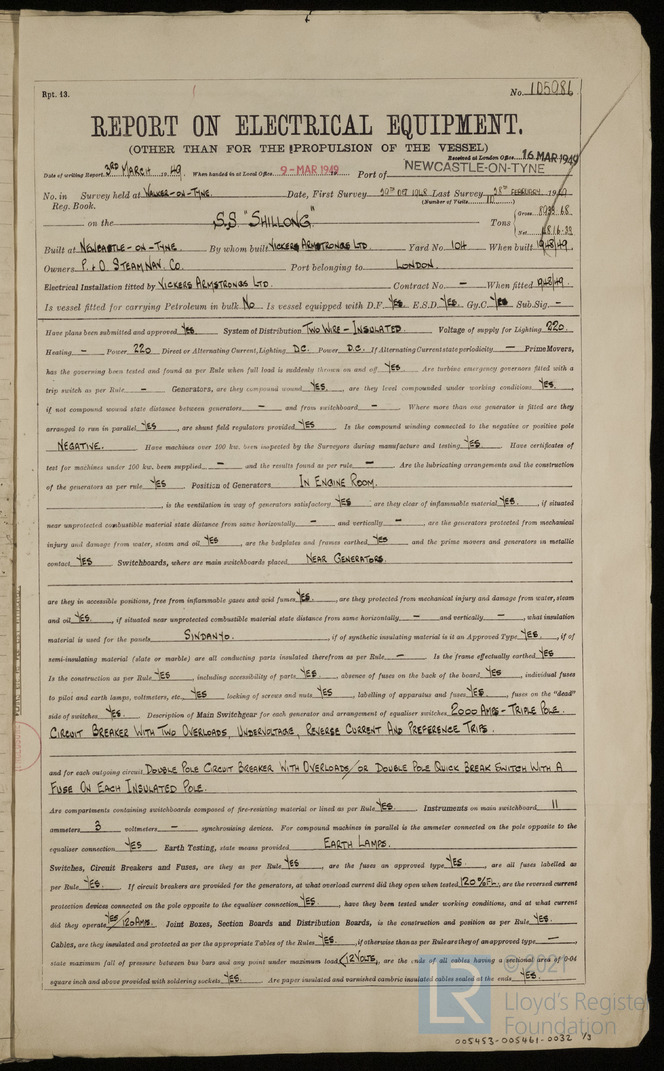 Rpt. 13.
No. 105086
REPORT ON ELECTRICAL EQUIPMENT.
(OTHER THAN FOR THE PROPULSION OF THE VESSEL)
Received at London Office 16 MAR 1949
Date of writing Report 3RD MARCH 1949. When handed in at Local Office 9-MAR 1949 Port of NEWCASTLE-ON-TYNE
No. in Survey held at WALKER-ON-TYNE. Date, First Survey OCT 1948 Last Survey 28TH FEBRUARY 1949
Reg. Book. (Number of Visits)
on the S.S "SHILLONG" Tons Gross 8933.68
Net 4816.33
Built at NEWCASTLE-ON-TYNE By whom built VICKERS ARMSTRONGS LTD Yard No. 104 When built 1948/49.
Owners P. & O STEAM NAV. CO. Port belonging to LONDON.
Electrical Installation fitted by VICKERS ARMSTRONGS LTD. Contract No. - When fitted 1948/49.
Is vessel fitted for carrying Petroleum in bulk NO Is vessel equipped with D.F. YES E.S.D. YES Gy.C. YES Sub.Sig. -
Have plans been submitted and approved YES System of Distribution TWO WIRE-INSULATED Voltage of supply for Lighting 220.
Heating - Power 220 Direct or Alternating Current, Lighting D.C. Power D.C. If Alternating Current state periodicity - Prime Movers,
has the governing been tested and found as per Rule when full load is suddenly thrown on and off YES. Are turbine emergency governors fitted with a
trip switch as per Rule - Generators, are they compound wound YES, are they level compounded under working conditions YES,
if not compound wound state distance between generators - and from switchboard - Where more than one generator is fitted are they
arranged to run in parallel YES, are shunt field regulators provided YES Is the compound winding connected to the negative or positive pole
NEGATIVE. Have machines over 100 kw. been inspected by the Surveyors during manufacture and testing YES. Have certificates of
test for machines under 100 kw. been supplied - and the results found as per rule - Are the lubricating arrangements and the construction
of the generators as per rule YES. Position of Generators IN ENGINE ROOM.
, is the ventilation in way of generators satisfactory YES are they clear of inflammable material YES, if situated
near unprotected combustible material state distance from same horizontally - and vertically - are the generators protected from mechanical
injury and damage from water, steam and oil YES, are the bedplates and frames earthed YES and the prime movers and generators in metallic
contact YES Switchboards, where are main switchboards placed NEAR GENERATORS.
are they in accessible positions, free from inflammable gases and acid fumes YES, are they protected from mechanical injury and damage from water, steam
and oil YES, if situated near unprotected combustible material state distance from same horizontally - and vertically -, what insulation
material is used for the panels SINDANYO., if of synthetic insulating material is it an Approved Type YES, if of
semi-insulating material (slate or marble) are all conducting parts insulated therefrom as per Rule - Is the frame effectually earthed YES
Is the construction as per Rule YES, including accessibility of parts YES, absence of fuses on the back of the board YES, individual fuses
to pilot and earth lamps, voltmeters, etc. YES locking of screws and nuts YES, labelling of apparatus and fuses YES, fuses on the "dead"
side of switches YES. Description of Main Switchgear for each generator and arrangement of equaliser switches 2000 AMPS-TRIPLE POLE.
CIRCUIT BREAKER WITH TWO OVERLOADS, UNDERVOLTAGE, REVERSE CURRENT AND PREFERENCE TRIPS.
and for each outgoing circuit DOUBLE POLE CIRCUIT BREAKER WITH OVERLOADS/OR DOUBLE POLE QUICK BREAK SWITCH WITH A
FUSE ON EACH INSULATED POLE.
Are compartments containing switchboards composed of fire-resisting material or lined as per Rule YES. Instruments on main switchboard 11
ammeters 3 voltmeters - synchronising devices. For compound machines in parallel is the ammeter connected on the pole opposite to the
equaliser connection YES Earth Testing, state means provided EARTH LAMPS.
Switches, Circuit Breakers and Fuses, are they as per Rule YES, are the fuses an approved type YES, are all fuses labelled as
per Rule YES. If circuit breakers are provided for the generators, at what overload current did they open when tested 120% F.L., are the reversed current
protection devices connected on the pole opposite to the equaliser connection YES, have they been tested under working conditions, and at what current
did they operate YES/120 AMPS. Joint Boxes, Section Boards and Distribution Boards, is the construction and position as per Rule YES.
Cables, are they insulated and protected as per the appropriate Tables of the Rules YES., if otherwise than as per Rule are they of an approved type -,
state maximum fall of pressure between bus bars and any point under maximum load <12 VOLTS, are the ends of all cables having a sectional area of 0·04
square inch and above provided with soldering sockets YES. Are paper insulated and varnished cambric insulated cables sealed at the ends YES.
© 2021
Lloyd's Register
Foundation
005453-005461-0032 1/3